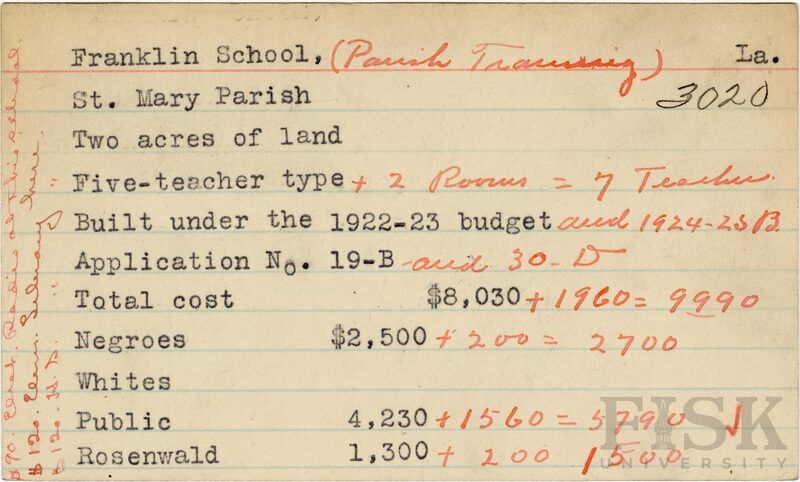 Franklin School, (Parish Training) La.
3020
St. Mary Parish
Two acres of land
Five-teacher type + 2 Rooms = 7 Teacher.
Built under the 1922-23 budget and 1924-25 B.
Application No. 19-B and 30-D
Total cost $8,030 + 1960 = 9990
Negroes $2,500 + 200 = 2700
Whites
Public 4,230 + 1560 = 5790 ✓
Rosenwald 1,300 + 200 1500
$90. Elect. Radio at this school.
$120. Elem. Library here.
$120. H.S. " "
FISK
UNIVERSITY